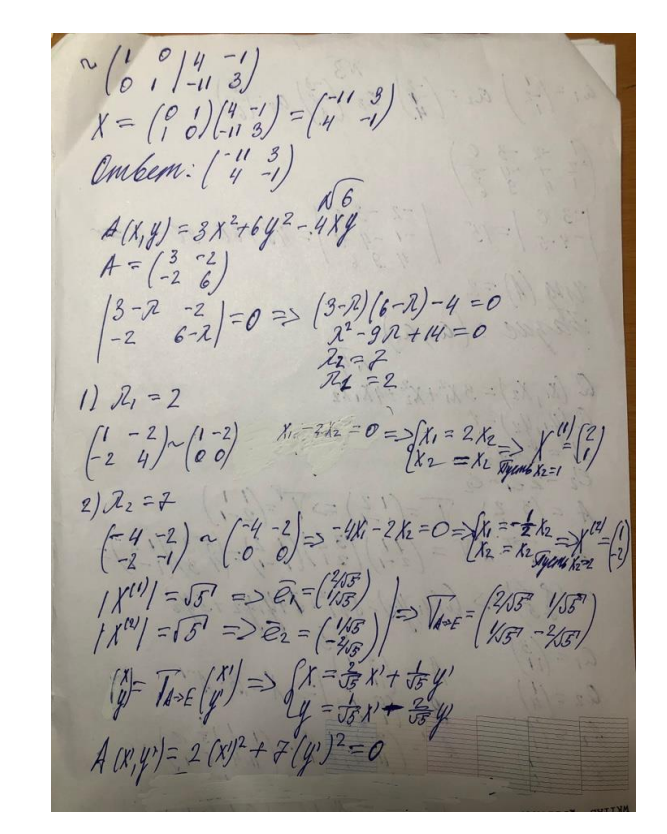 ~ (1 0 | 4 -1
0 1 | -11 3)
X = (0 1
1 0) (4 -1
-11 3) = (-11 3
4 -1)
Ответ: (-11 3
4 -1)
√6
A(x,y) = 3x² + 6y² - 4xy
A = (3 -2
-2 6)
|3-λ -2
-2 6-λ| = 0 => (3-λ)(6-λ) - 4 = 0
λ² - 9λ + 14 = 0
λ₂ = 7
λ₁ = 2
1) λ₁ = 2
(1 -2
-2 4) ~ (1 -2
0 0) x₁ - 2x₂ = 0 => {x₁ = 2x₂
x₂ = x₂ => Пусть x₂=1 X⁽¹⁾ = (2
1)
2) λ₂ = 7
(-4 -2
-2 -1) ~ (-4 -2
0 0) => -4x₁ - 2x₂ = 0 => {x₁ = -½x₂
x₂ = x₂ => Пусть x₂=2 X⁽²⁾ = (1
-2)
|X⁽¹⁾| = √5 => e̅₁ = (2/√5
1/√5)
|X⁽²⁾| = √5 => e̅₂ = (1/√5
-2/√5) | => T_A→E = (2/√5 1/√5
1/√5 -2/√5)
(x
y) = T_A→E (x'
y') => {x = 2/√5 x' + 1/√5 y'
y = 1/√5 x' - 2/√5 y'
A(x',y') = 2(x')² + 7(y')² = 0